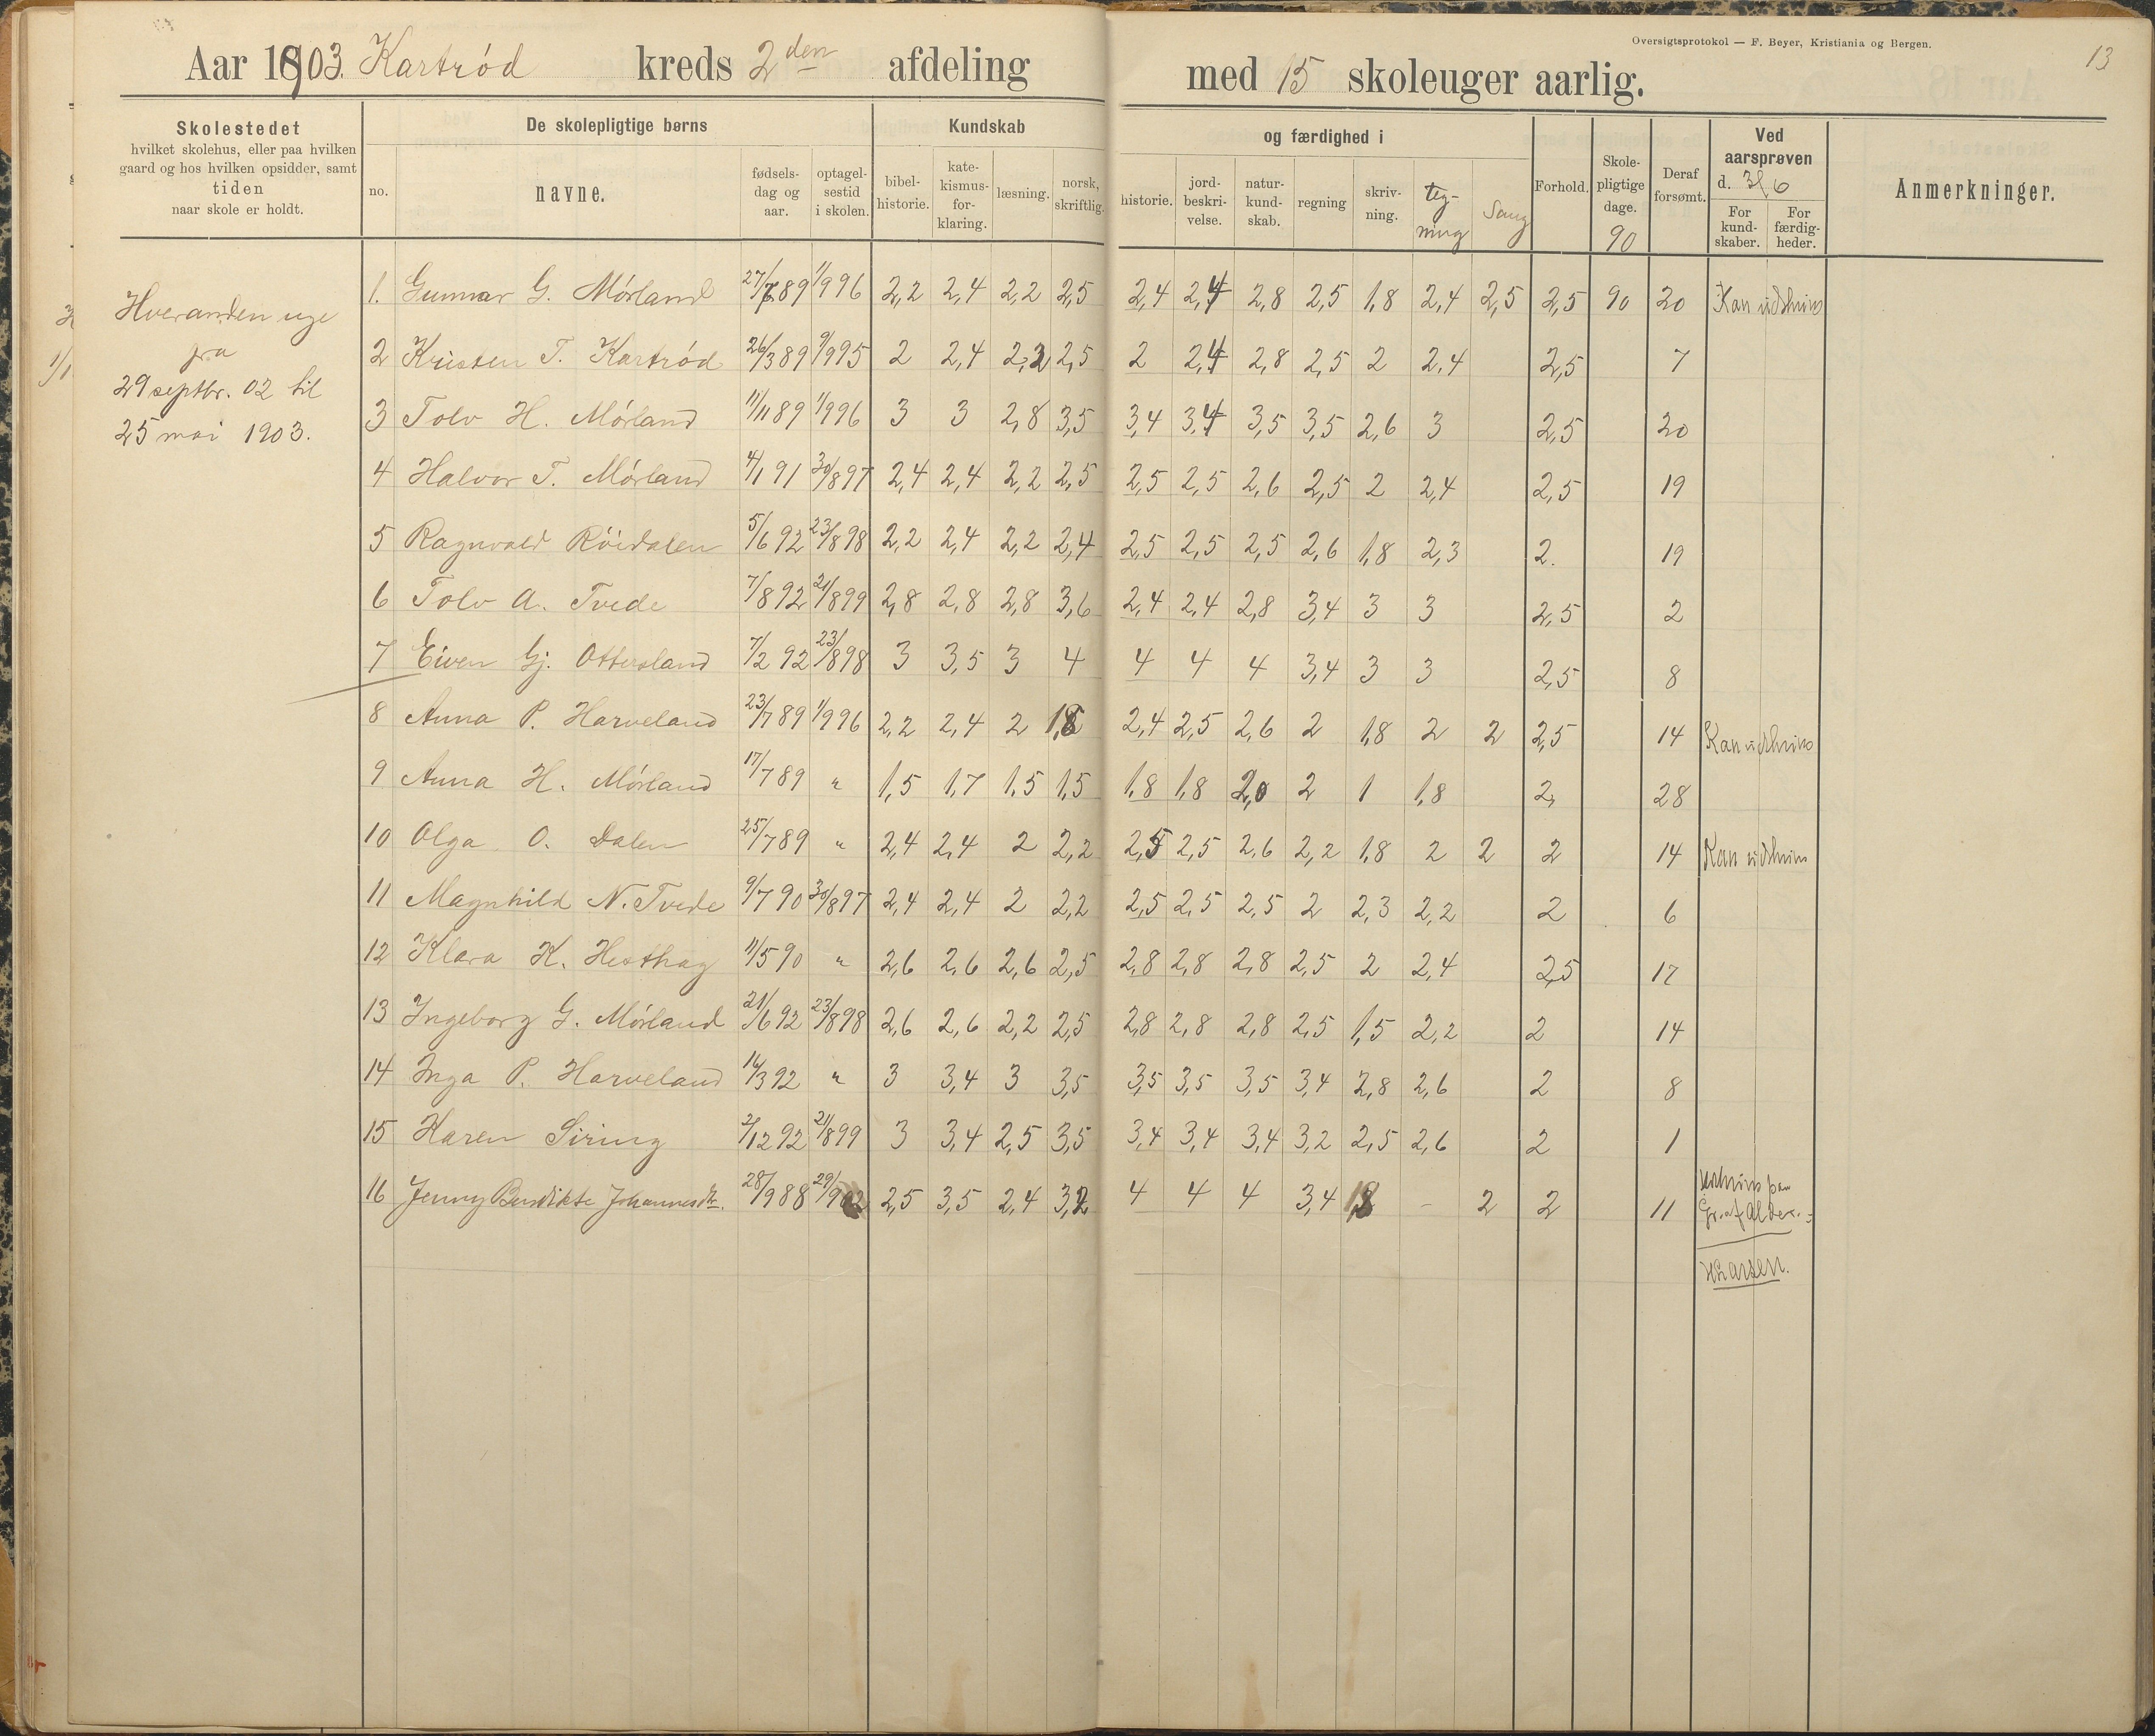 Oversigtsprotokol — F. Beyer, Kristiania og Bergen.
13
Aar 1903. Kartrød kreds 2den afdeling med 15 skoleuger aarlig.
Skolestedet
hvilket skolehus, eller paa hvilken
gaard og hos hvilken opsidder, samt
tiden
naar skole er holdt.
De skolepligtige børns
no.
navne.
fødsels-
dag og
aar.
optagel-
sestid
i skolen.
Kundskab
bibel-
historie.
kate-
kismus-
for-
klaring.
læsning.
norsk,
skriftlig.
og færdighed i
historie.
jord-
beskri-
velse.
natur-
kund-
skab.
regning
skriv-
ning.
teg-
ning
Sang
Forhold.
Skole-
pligtige
dage.
90
Deraf
forsømt.
Ved
aarsprøven
d. 3/6
For
kund-
skaber.
For
færdig-
heder.
Anmerkninger.
Hveranden uge
fra
29 septbr. 02 til
25 mai 1903.
1. Gunnar G. Mørland 27/7 89 1/9 96 2,2 2,4 2,2 2,5 2,4 2,4 2,8 2,5 1,8 2,4 2,5 2,5 90 20 Kan udskrives
2 Kristen T. Kartrød 26/3 89 9/9 95 2 2,4 2,2 2,5 2 2,4 2,8 2,5 2 2,4 2,5 7
3 Tolv H. Mørland 11/11 89 1/9 96 3 3 2,8 3,5 3,4 3,4 3,5 3,5 2,6 3 2,5 20
4 Halvor T. Mørland 4/1 91 30/8 97 2,4 2,4 2,2 2,5 2,5 2,5 2,6 2,5 2 2,4 2,5 19
5 Ragnvald Röidalen 5/6 92 23/8 98 2,2 2,4 2,2 2,4 2,5 2,5 2,5 2,6 1,8 2,3 2. 19
6 Tolv A. Tvede 7/8 92 21/8 99 2,8 2,8 2,8 3,6 2,4 2,4 2,8 3,4 3 3 2,5 2
7 Eiven Gj. Ottersland 7/2 92 23/8 98 3 3,5 3 4 4 4 4 3,4 3 3 2,5 8
8 Anna P. Harveland 23/7 89 1/9 96 2,2 2,4 2 1,8 2,4 2,5 2,6 2 1,8 2 2 2,5 14 Kan udskrives
9 Anna H. Mørland 17/7 89 " 1,5 1,7 1,5 1,5 1,8 1,8 2,0 2 1 1,8 2, 28
10 Olga O. Dalen 25/7 89 " 2,4 2,4 2 2,2 2,5 2,5 2,6 2,2 1,8 2 2 2 14 Kan udskrives
11 Magnhild N. Tvede 9/7 90 30/8 97 2,4 2,4 2 2,2 2,5 2,5 2,5 2 2,3 2,2 2 6
12 Klara K. Hesthag 11/5 90 " 2,6 2,6 2,6 2,5 2,8 2,8 2,8 2,5 2 2,4 2,5 17
13 Ingeborg G. Mørland 21/6 92 23/8 98 2,6 2,6 2,2 2,5 2,8 2,8 2,8 2,5 1,5 2,2 2 14
14 Inga P. Harveland 14/3 92 " 3 3,4 3 3,5 3,5 3,5 3,5 3,4 2,8 2,6 2 8
15 Karen Siring 2/12 92 21/8 99 3 3,4 2,5 3,5 3,4 3,4 3,4 3,2 2,5 2,6 2 1
16 Jenny Bendikte Johannesdtr. 28/9 88 29/9 02 2,5 3,5 2,4 3,2 4 4 4 3,4 1,8 - 2 2 11 Udskrives paa
Gr. af Alder.
HLarsen.